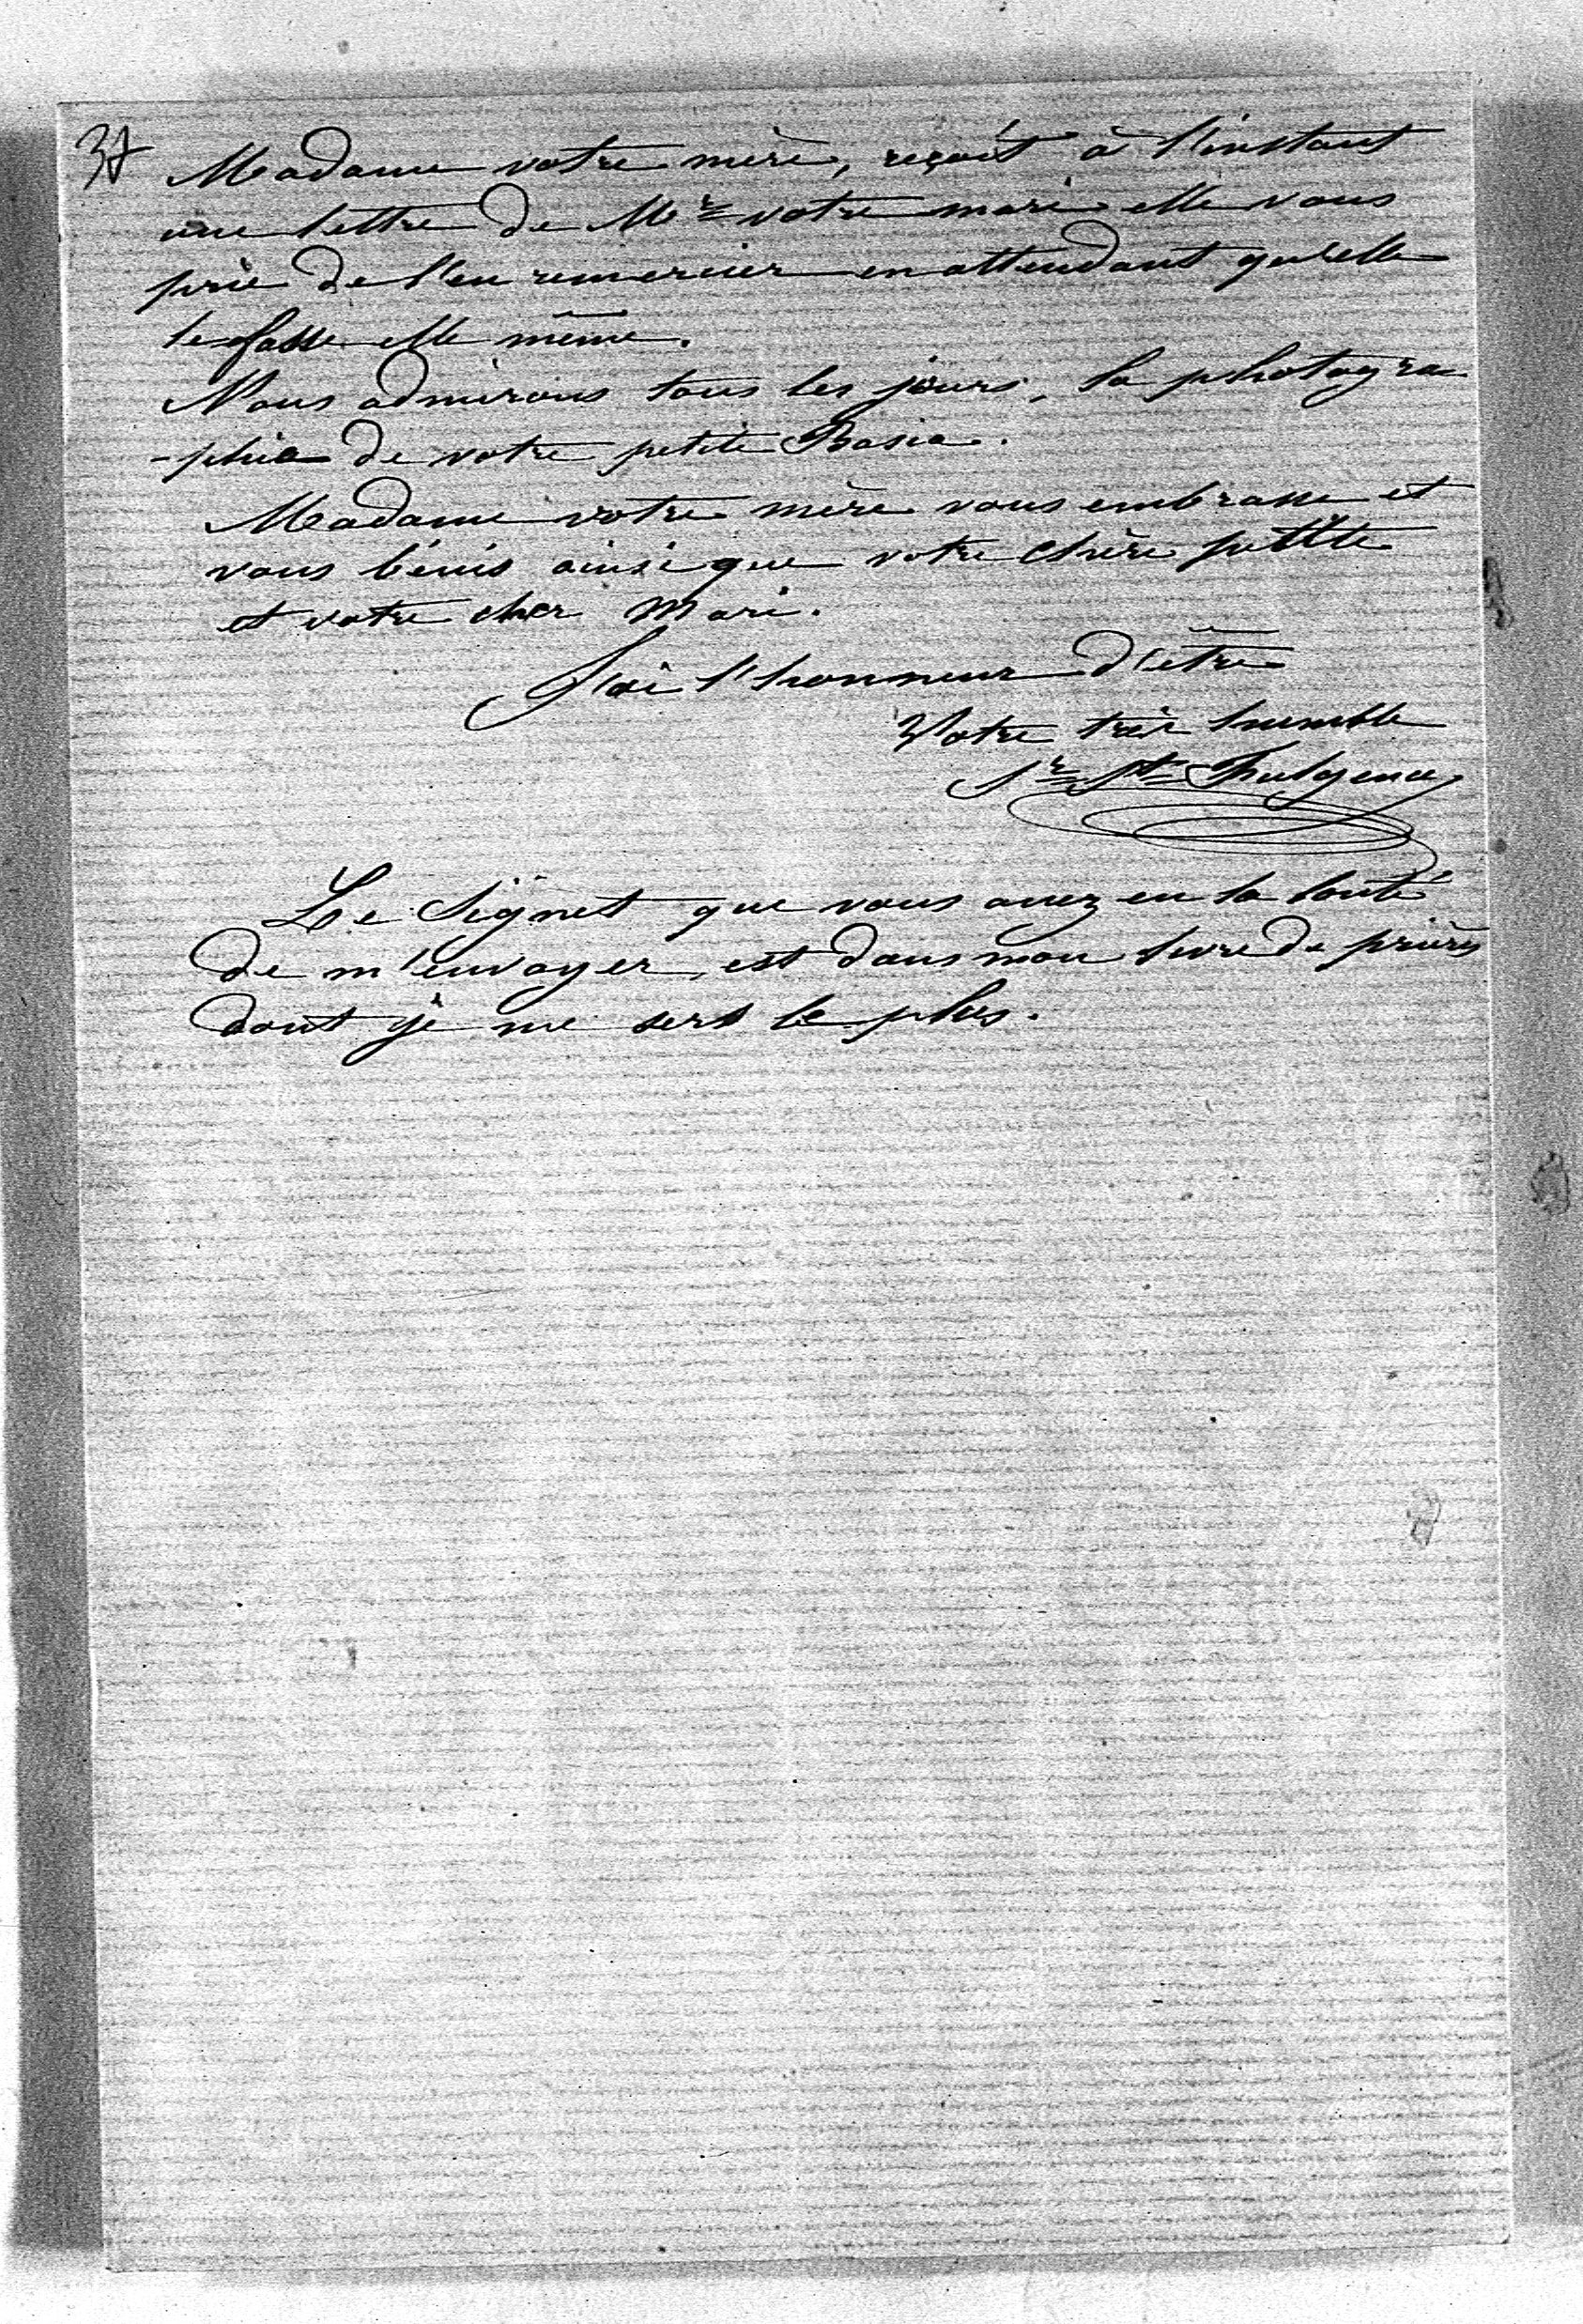 37
Madame votre mère, reçoit à l'instant
une lettre de Mr votre mari elle vous
prie de l'en remercier en attendant qu'elle
le fasse elle même.
Nous admirons tous les jours, la photogra
-phie de votre petite Basia.
Madame votre mère vous embrasse et
vous bénis ainsi que votre chère petite
et votre cher Mari.
J'ai l'honneur d'être
Votre très humble
Sr St Fulgence
Le Signet que vous avez eu la bonté
de m'envoyer, est dans mon livre de prières
dont je me sers le plus.